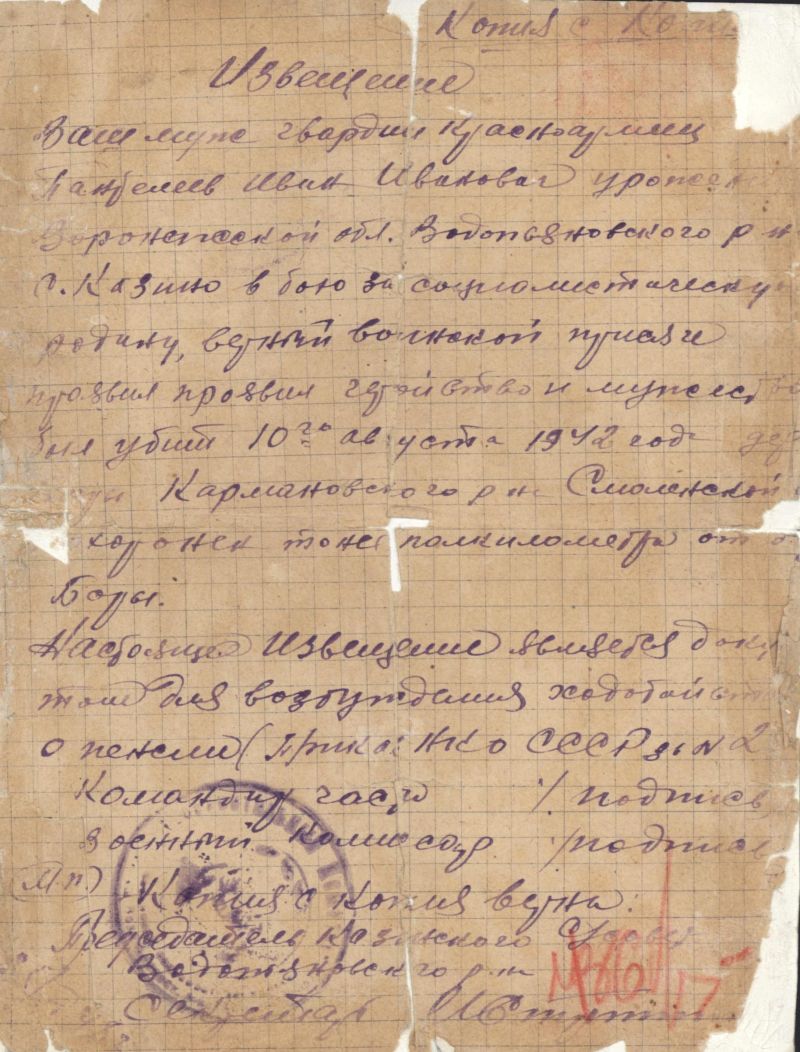 Копия с Копи
Извещение
Ваш муж гвардии Красноармиец
Пантелеев Иван Иванович уроже
Воронежской обл. Водопьяновского р н
с. Казино в бою за социалистическую
родину, верный воинской присяге
проявил проявил геройство и мужество
был убит 10го августа 1942 год дер
Кармановского р на Смоленской
хоронен тоже полкилометра от
Боры.
Настоящее Извещение является доку
том для возбуждения ходотайства
о пенсии (Приказ НКО СССР за N 2
Командир части / подпись
Военный Комиссар / подпись
(Мп) Копия с Копия верна:
Председатель Казинского С/Совет
Водопьяновского р на
Секретарь